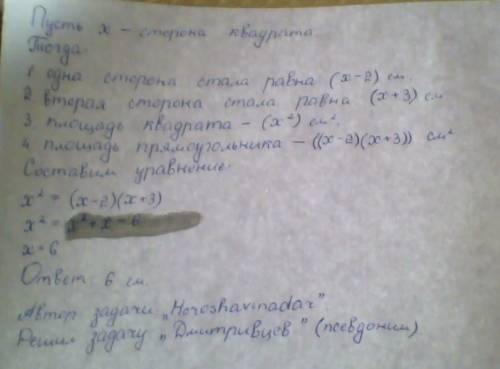 Пусть x - сторона квадрата
Тогда
1 одна сторона стала равна (x-2) см.
2 вторая сторона стала равна (x+3) см
3. площадь квадрата - (x²) см².
4 площадь прямоугольника - ((x-2)(x+3)) см²
Составим уравнение:
x² = (x-2)(x+3)
x² = x²+x-6
x=6
Ответ: 6 см.
Автор задачи „Horoshavinadar"
Решил задачу „Дмитривцев" (псевдоним)